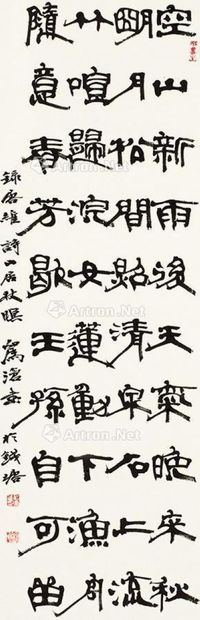 空山新雨後天氣晚來秋
明月松間照清泉石上流
竹喧歸浣女蓮動下漁舟
隨意春芳歇王孫自可留
維詩山居秋暝 於錢塘
Artron.Net
Artron.Net
Artron.Net